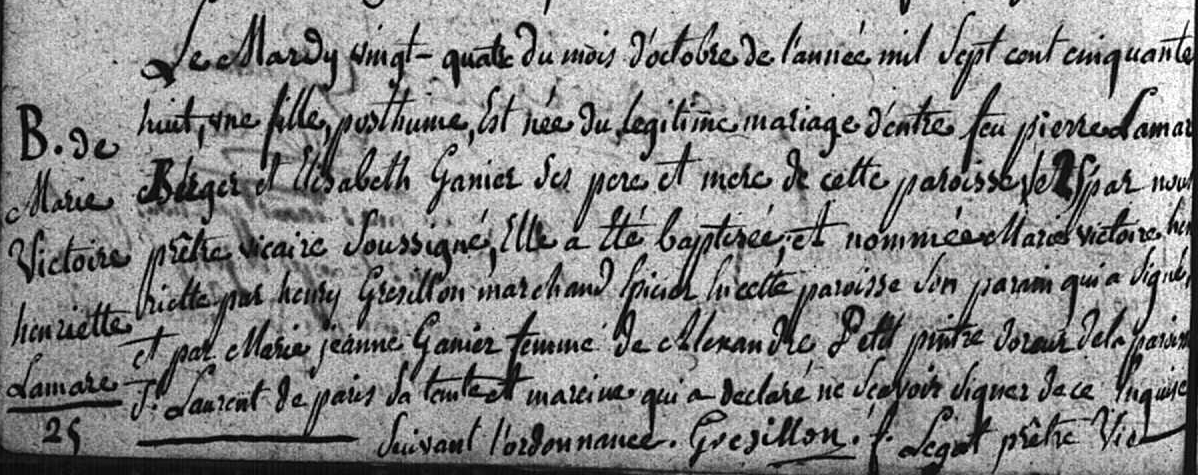 Le Mardy vingt-quatre du mois d'octobre de l'année mil sept cent cinquante
huit, une fille, posthume, Est née du legitime mariage d'entre feu pierre Lamar
B. de
Berger et Elisabeth Ganier ses pere et mere de cette paroisse le 25 par nous
Marie
prêtre vicaire soussigné, Elle a été baptisée, et nommée Marie victoire hen
Victoire
riette par henry Gresillon marchand Epicier en cette paroisse son parain qui a signé,
henriette
et par Marie jeanne Ganier femme de Alexandre Petit pintre doreur de la paroisse
Lamare
St. Laurent de paris sa tante et mareine qui a declaré ne sçavoir signer de ce Enquise
25
suivant l'ordonnance. Gresillon. f. Legat prêtre Vic